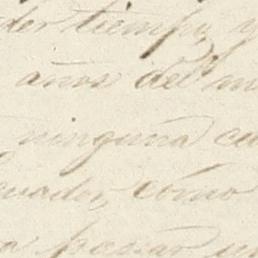 der tiempo, y
años del
ninguna
cuador, como
a pesar